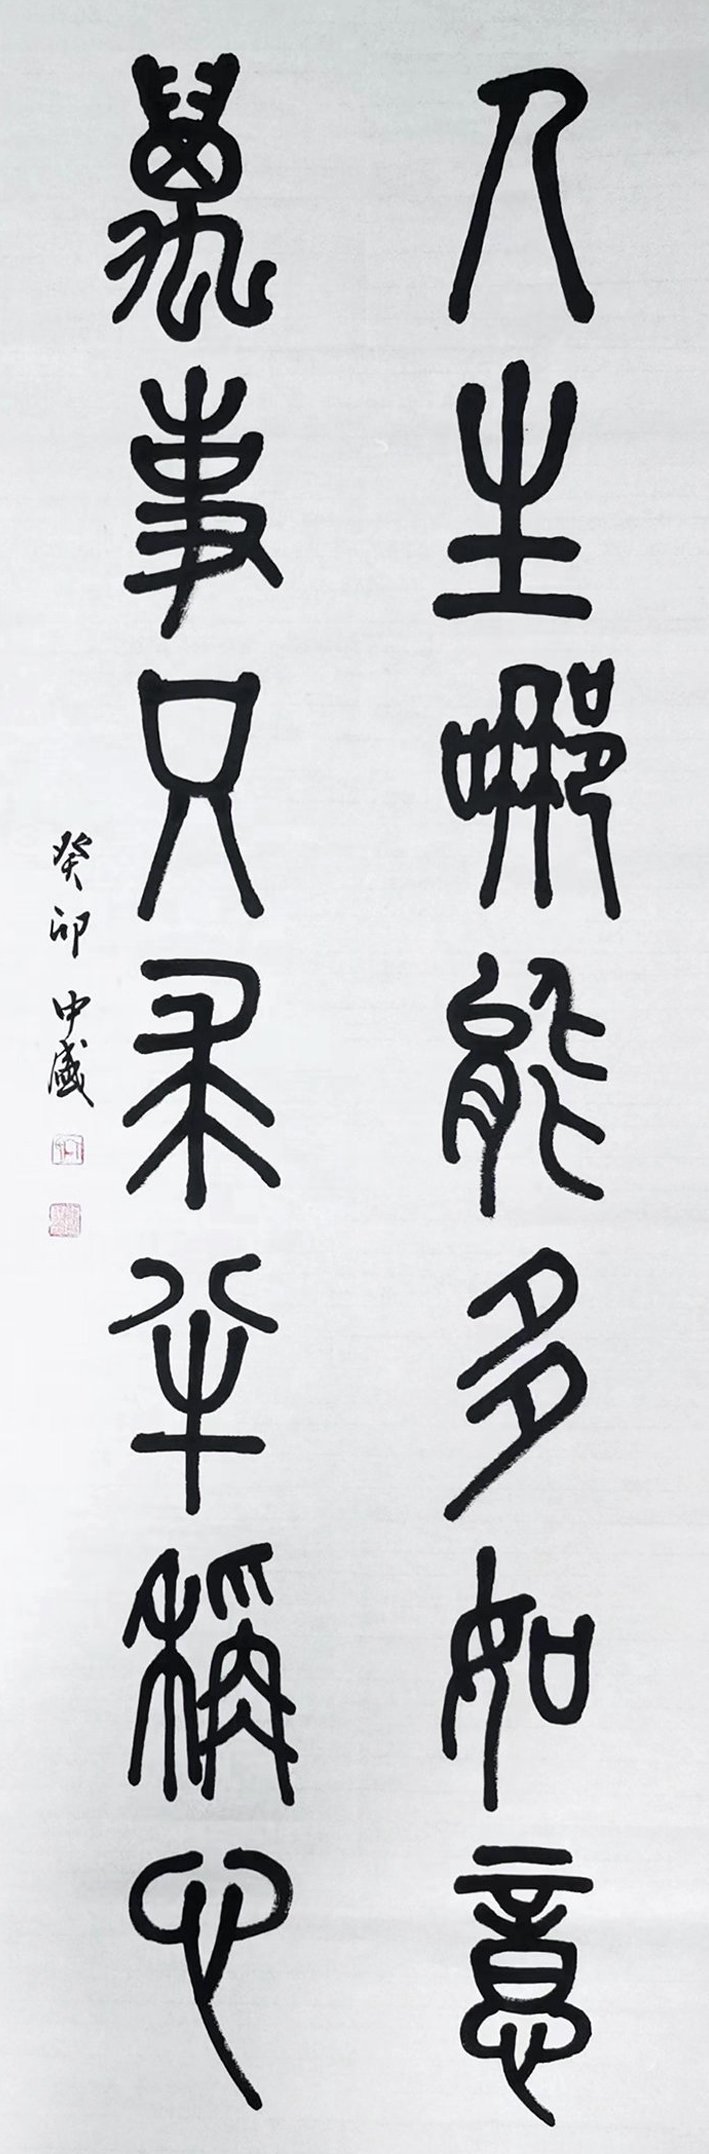 人生哪能多如意
萬事只求半稱心
癸卯 中盛